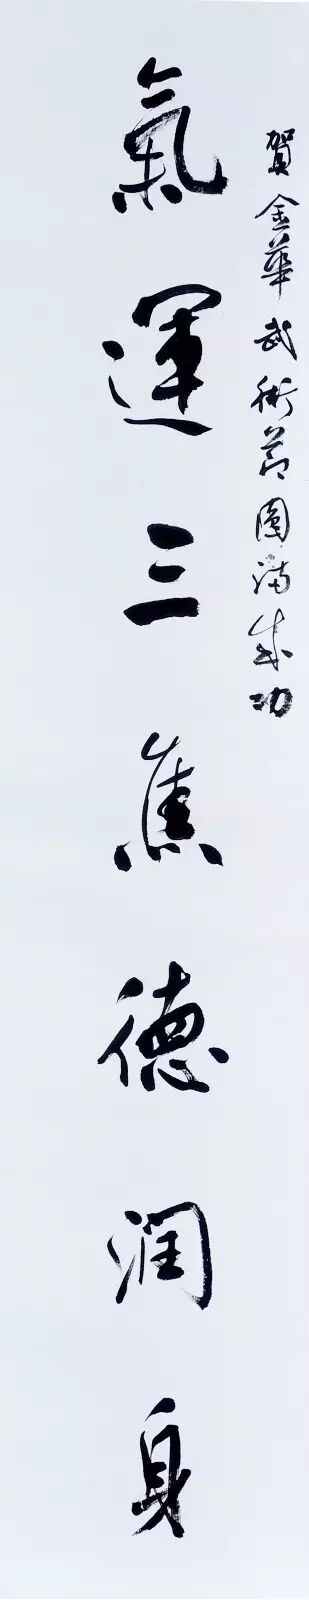 賀金華武術節圓滿成功
氣運三焦德潤身